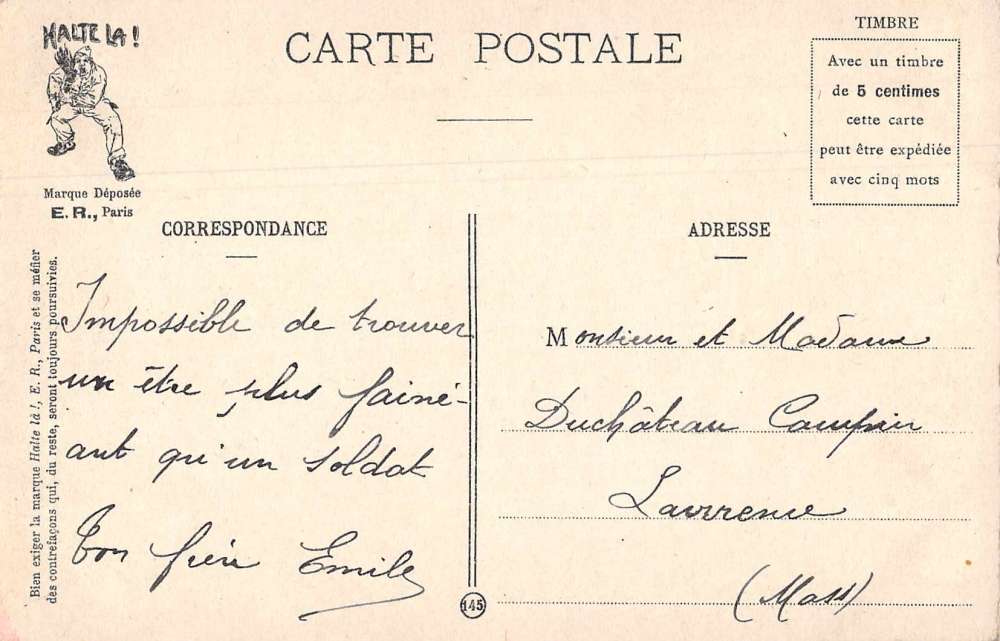 HALTE LA !
Marque Déposée
E. R., Paris
CARTE POSTALE
TIMBRE
Avec un timbre
de 5 centimes
cette carte
peut être expédiée
avec cinq mots
CORRESPONDANCE
Impossible de trouver
un être plus fainé-
ant qu'un soldat
Ton frère Emile
ADRESSE
Monsieur et Madame
Duchâteau
Lawrence
(Mass)
145
Bien exiger la marque Halte là !, E. R., Paris et se méfier
des contrefaçons qui, du reste, seront toujours poursuivies.